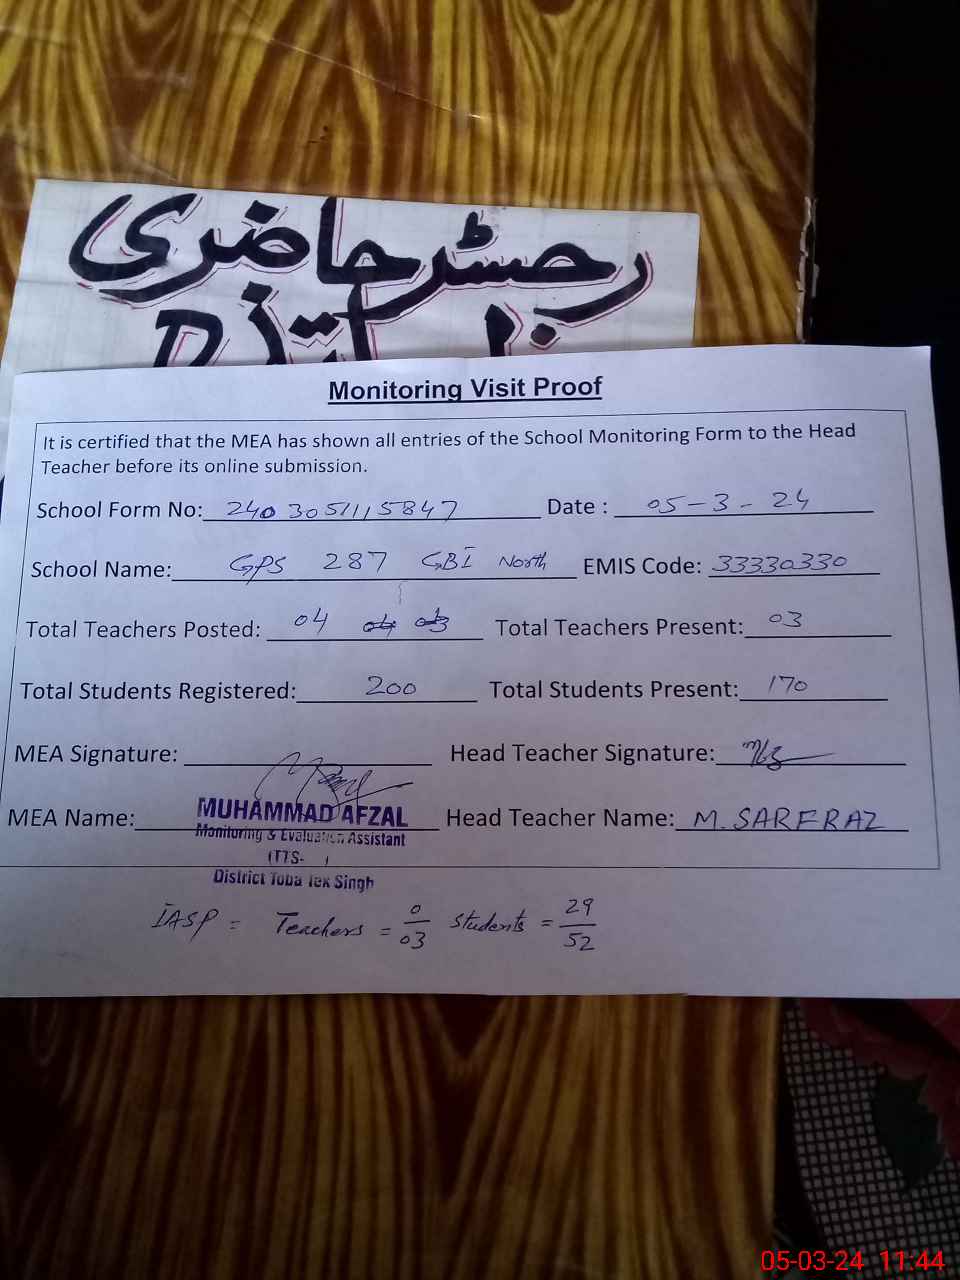 رجسٹر حاضری
Monitoring Visit Proof
It is certified that the MEA has shown all entries of the School Monitoring Form to the Head
Teacher before its online submission.
School Form No: 2403051115847 Date : 05-3-24
School Name: GPS 287 GBI North EMIS Code: 33330330
Total Teachers Posted: 04 04 03 Total Teachers Present: 03
Total Students Registered: 200 Total Students Present: 170
MEA Signature: Head Teacher Signature:
MEA Name: MUHAMMAD AFZAL Head Teacher Name: M. SARFRAZ
Monitoring & Evaluation Assistant
(TTS- )
District Toba Tek Singh
IASP = Teachers = 0/03 Students = 29/52
05-03-24 11:44